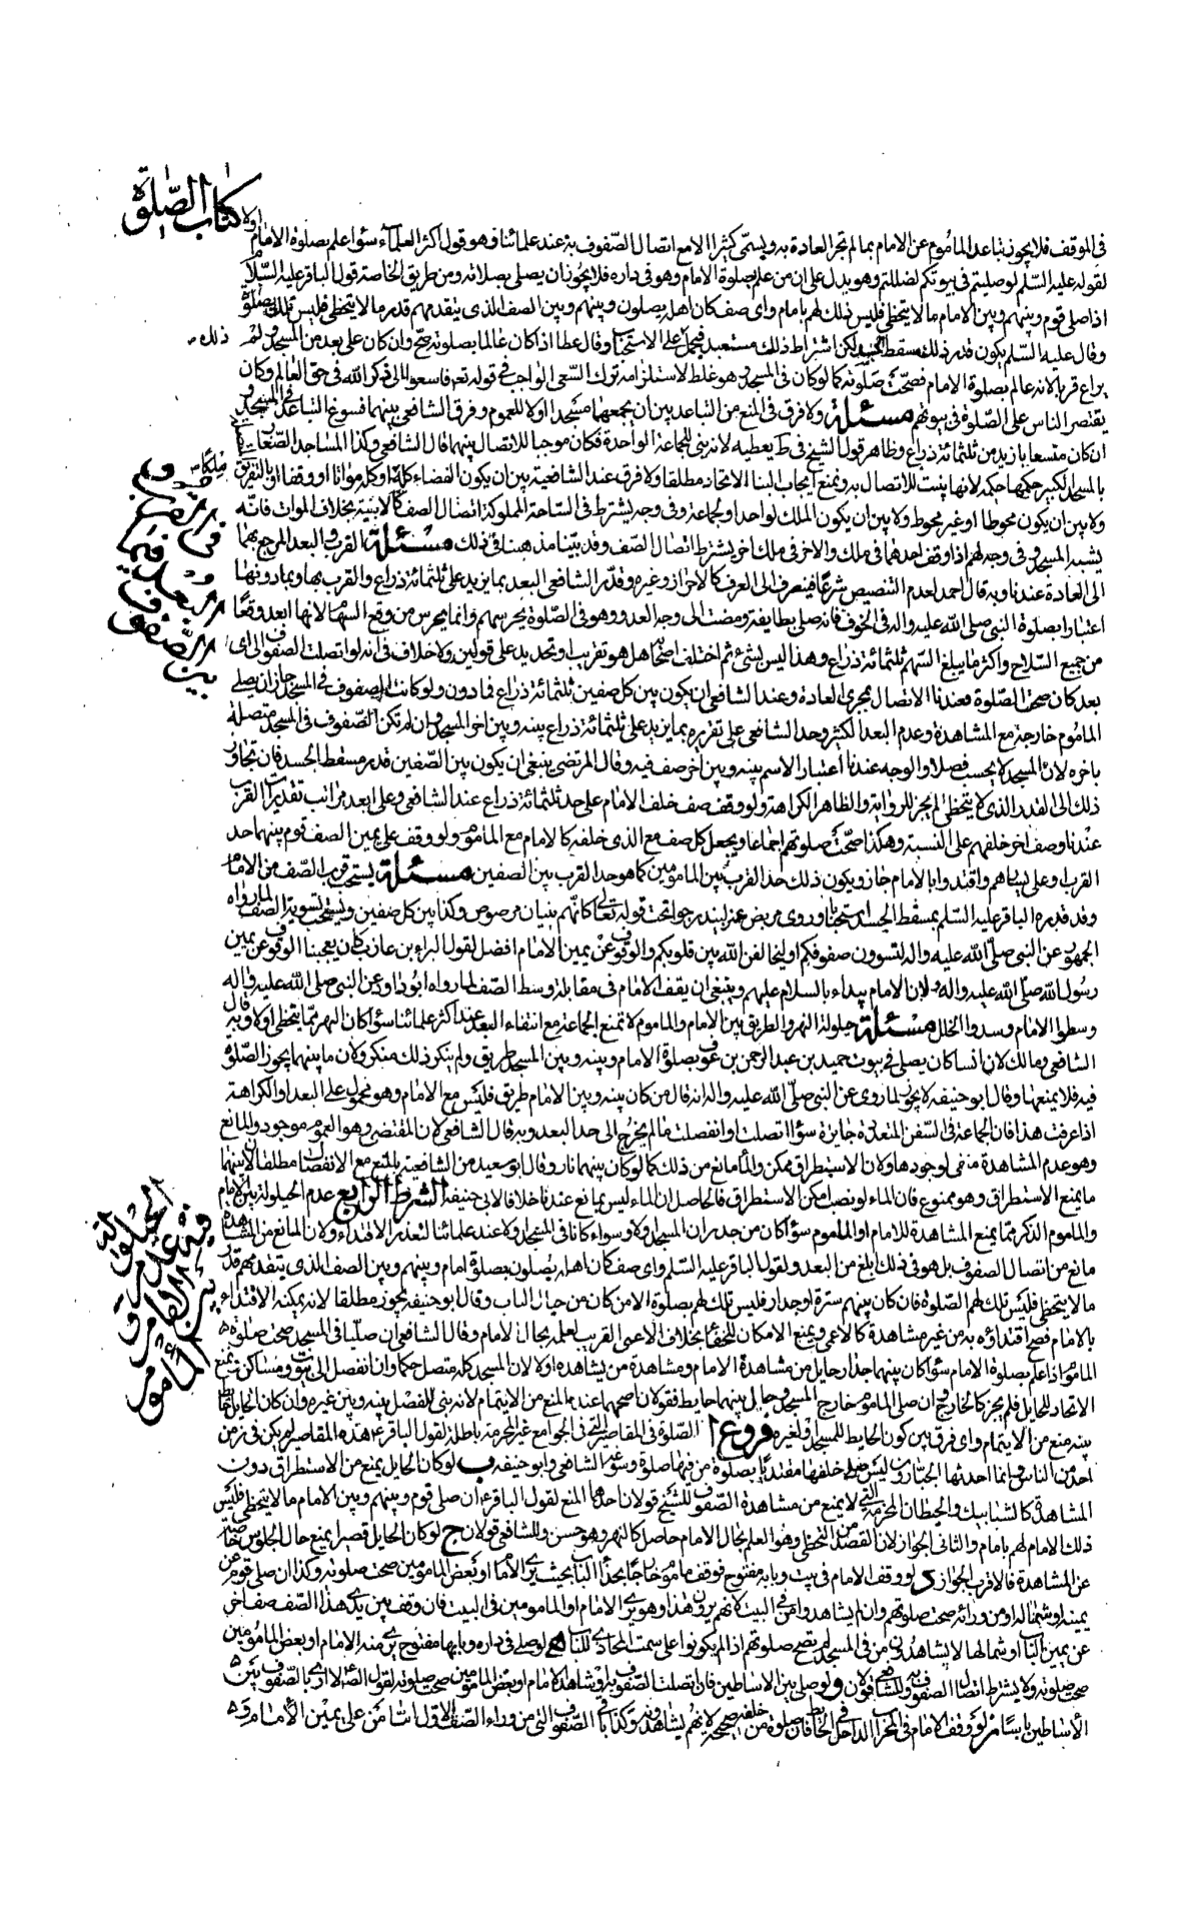 كتاب الصلوة
فى الموقف فلا يجوز تباعد المأموم عن الامام بما لم تجر العادة به ويسمى كثيرا الا مع اتصال الصفوف به عند علمائنا وهو قول اكثر العلماء سواء علم بصلوة الامام اولا
لقوله عليه السلم لو صليتم فى بيوتكم لضللتم وهو يدل على ان من علم صلوة الامام وهو فى داره فلا يجوز ان يصلى بصلاته ومن طريق الخاصة قول الباقر عليه السلام
اذا صلى قوم وبينهم وبين الامام ما لا يتخطى فليس ذلك لهم بامام واى صف كان اهله يصلون وبينهم وبين الصف الذى يتقدمهم قدر ما لا يتخطى فليس تلك بصلوة
وقال عليه السلم يكون قدر ذلك مسقط الجسد لكن اشتراط ذلك مستبعد فيحمل على الاستحباب وقال عطا اذا كان عالما بصلوته صح وان كان على بعد من المسجد ولم
يراع قربا لانه عالم بصلوة الامام فصحت صلوته كما لو كان فى المسجد وهو غلط لاستلزامه ترك السعى الواجب فى قوله تعم فاسعوا الى ذكر الله فى حق العالم وكان
يقتصر الناس على الصلوة فى بيوتهم مسئلة ولا فرق فى المنع من التباعد بين ان يجمعهما مسجد اولا للعموم وفرق الشافعى بينهما فسوغ التباعد فى المسجد و
ان كان متسعا بازيد من ثلثمائة ذراع وظاهر قول الشيخ فى ط يعطيه لانه بنى للجماعة الواحدة فكان موجبا للاتصال بينهما قال الشافعى وكذا المساجد الصغار
بالمسجد الكبير حكمها حكمه لانها بنيت للاتصال به ونمنع ايجاب البنا الاتحاد مطلقا ولا فرق عند الشافعية بين ان يكون الفضاء كله ملكا او كله مواتا او وقفا او بالتفريق
ولا بين ان يكون محوطا او غير محوط ولا بين ان يكون الملك لواحد او لجماعة وفى وجه يشترط فى الساحة المملوكة اتصال الصف كالابنية بخلاف الموات فانه
يشبه المسجد وفى وجه لهم اذا وقف احدهما فى ملك والاخر فى ملك اخر يشترط اتصال الصف وقد بينا مذهبنا فى ذلك مسئلة القرب والبعد المرجع بهما
الى العادة عندنا وبه قال احمد لعدم التنصيص شرعا فينصرف الى العرف كالاحراز وغيره وقدر الشافعى البعد بما يزيد على ثلثمائة ذراع والقرب بها وبما دونها
اعتبارا بصلوة النبى صلى الله عليه واله فى الخوف فانه صلى بطايفة ومضت الى وجه العدو وهو فى الصلوة يحرسهم وانما يحرس من وقع السهام لانها ابعد وقعا
من جميع السلاح واكثر ما يبلغ السهم ثلثمائة ذراع وهذا ليس بشئ ثم اختلف اصحابه هل هو تقريب او تحديد على قولين ولا خلاف فى انه لو اتصلت الصفوف الى اى
بعد كان صحت الصلوة فعندنا الاتصال مجرى العادة وعند الشافعى ان يكون بين كل صفين ثلثمائة ذراع فما دون ولو كانت الصفوف فى المسجد جاز ان يصلى
الماموم خارجه مع المشاهدة وعدم البعد الكثير وحد الشافعى على تقريره بما يزيد على ثلثمائة ذراع بينه وبين اخر المسجد وان لم تكن الصفوف فى المسجد متصلة
باخره لان المسجد لا يحسب فصلا والوجه عندنا اعتبار الاسم بينه وبين اخر صف فيه وقال المرتضى ينبغى ان يكون بين الصفين قدر مسقط الجسد فان تجاوز
ذلك الى القدر الذى لا يتخطى لم يجز للرواية والظاهر الكراهة ولو وقف صف خلف الامام على حد ثلثمائة ذراع عند الشافعى وعلى ابعد مراتب تقديرات القرب
عندنا وصف اخر خلفهم على النسبة وهكذا صحت صلوتهم اجماعا ويجعل كل صف مع الذى خلفه كالامام مع الماموم ولو وقف على يمين الصف قوم بينهما حد
القرب او على يسارهم واقتدوا بالامام جاز ويكون ذلك حد القرب بين المامومين كما هو حد القرب بين الصفين مسئلة يستحب قرب الصف من الامام
وقد قدره الباقر عليه السلم بمسقط الجسد استحبابا وروى مربض عنز ليندرجوا تحت قوله تعالى كانهم بنيان مرصوص وكذا بين كل صفين ويستحب تسوية الصف لما رواه
الجمهور عن النبى صلى الله عليه واله لتسوون صفوفكم او ليخالفن الله بين قلوبكم والوقوف عن يمين الامام افضل لقول البراء بن عازب كان يعجبنا الوقوف عن يمين
رسول الله صلى الله عليه واله ولان الامام يبداء بالسلام عليهم وينبغى ان يقف الامام فى مقابلة وسط الصف لما رواه ابو داود عن النبى صلى الله عليه واله
وسطوا الامام وسدوا الخلل مسئلة حيلولة النهر والطريق بين الامام والماموم لا تمنع الجماعة مع انتفاء البعد عند اكثر علمائنا سواء كان النهر مما يتخطى اولا وبه قال
الشافعى ومالك لان انسا كان يصلى فى بيوت حميد بن عبد الرحمن بن عوف بصلوة الامام وبينه وبين المسجد طريق ولم ينكر ذلك منكر ولان ما بينهما يجوز الصلوة
فيه فلا يمنعها وقال ابو حنيفه لا يجوز لما روى عن النبى صلى الله عليه واله انه قال من كان بينه وبين الامام طريق فليس مع الامام وهو محمول على البعد او الكراهة
اذا عرفت هذا فان الجماعة فى السفن المتعددة جايزة سواء اتصلت او انفصلت ما لم يخرج الى حد البعد وبه قال الشافعى لان المقتضى وهو العموم موجود والمانع
وهو عدم المشاهدة منفى لوجودها ولان الاستطراق ممكن والماء مانع من ذلك كما لو كان بينهما نار وقال ابو سعيد من الشافعية بالمنع مع الانفصال مطلقا لان بينهما
ما يمنع الاستطراق وهو ممنوع فان الماء لو نضب امكن الاستطراق فالحاصل ان الماء ليس بمانع عندنا خلافا لابى حنيفه الشرط الرابع عدم الحيلولة بين الامام
والماموم الذكر مما يمنع المشاهدة للامام او الماموم سواء كان من جدران المسجد اولا وسواء كانا فى المسجد اولا عند علمائنا لتعذر الاقتداء ولان المانع من المشاهدة
مانع من اتصال الصفوف بل هو فى ذلك ابلغ من البعد ولقول الباقر عليه السلم واى صف كان اهله يصلون بصلوة امام وبينهم وبين الصف الذى يتقدمهم قدر
ما لا يتخطى فليس تلك لهم الصلوة فان كان بينهم سترة او جدار فليس تلك لهم بصلوة الا من كان من حيال الباب وقال ابو حنيفه يجوز مطلقا لانه يمكنه الاقتداء
بالامام فصح اقتداؤه به من غير مشاهدة كالاعمى ويمنع الامكان للخفاء بخلاف الاعمى القريب لعلمه بحال الامام وقال الشافعى ان صليا فى المسجد صحت صلوة
الماموم اذا علم بصلوة الامام سواء كان بينهما جدار حايل من مشاهدة الامام ومشاهدة من يشاهده اولا لان المسجد كله متصل حكما وان انفصل الى بيوت ومساكن ونمنع
الاتحاد للحايل فلم يجز كالخارج وان صلى الماموم خارج المسجد وحال بينهما حايط فقولان اصحهما عنده المنع من الايتمام لانه بنى للفصل بينه وبين غيره وان كان الحايل
بينه منع من الايتمام واى فرق بين كون الحايط للمسجد او لغيره فروع ا الصلوة فى المقاصير التى فى الجوامع غير المخرمة باطلة لقول الباقر ع هذه المقاصير لم يكن فى زمن
احد من الناس وانما احدثها الجبارون ليس لمن خلفها مقتديا بصلوة من فيها صلوة وسوغه الشافعى وابو حنيفه ب لو كان الحايل يمنع من الاستطراق دون
المشاهدة كالشبابيك والحيطان المخرمة التى لا يمنع من مشاهدة الصفوف للشيخ قولان احدهما المنع لقول الباقر ع ان صلى قوم وبينهم وبين الامام ما لا يتخطى فليس
ذلك الامام لهم بامام والثانى الجواز لان القصد من التخطى وهو العلم بحال الامام حاصل كالنهر وهو حسن وللشافعى قولان ج لو كان الحايل قصيرا يمنع حال الجلوس خاصة
عن المشاهدة فالاقرب الجواز د لو وقف الامام فى بيت وبابه مفتوح فوقف ماموم خارجا بحذاء الباب بحيث يرى الامام او بعض المامومين صحت صلوته وكذا ان صلى قوم عن
يمينه او شماله او من ورائه صحت صلوتهم وان لم يشاهدوا من فى البيت لانهم يرون هذا وهو يرى الامام او المامومين فى البيت فان وقف بين يدى هذا الصف صف اخر
عن يمين الباب او شمالها لا يشاهدون من فى المسجد لم تصح صلوتهم اذا لم يكونوا على سمت المحاذى للباب ه لو صلى فى داره وبابها مفتوح يرى منه الامام او بعض المامومين
صحت صلوته ولا يشترط اتصال الصفوف به وللشافعى قولان و لو صلى بين الاساطين فان اتصلت الصفوف به او شاهد الامام او بعض المامومين صحت صلوته لقول الص ع لا ارى بالصفوف بين
الاساطين باسا ز لو وقف الامام فى المحراب الداخل فى الحايط فان صلوة من خلفه صحيحة لانهم يشاهدونه وكذا باقى الصفوف التى من وراء الصف الاول اما من على يمين الامام
ذلك
فى القرب والبعد فيما بين الصفوف